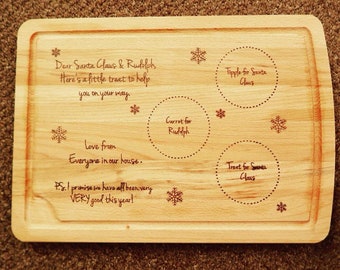 Dear Santa Claus & Rudolph,
Here's a little treat to help
you on your way.
Tipple for Santa
Claus
Carrot for
Rudolph
Love from
Everyone in our house.
Treat for Santa
Claus
PS. I promise we have all been very
VERY good this year!